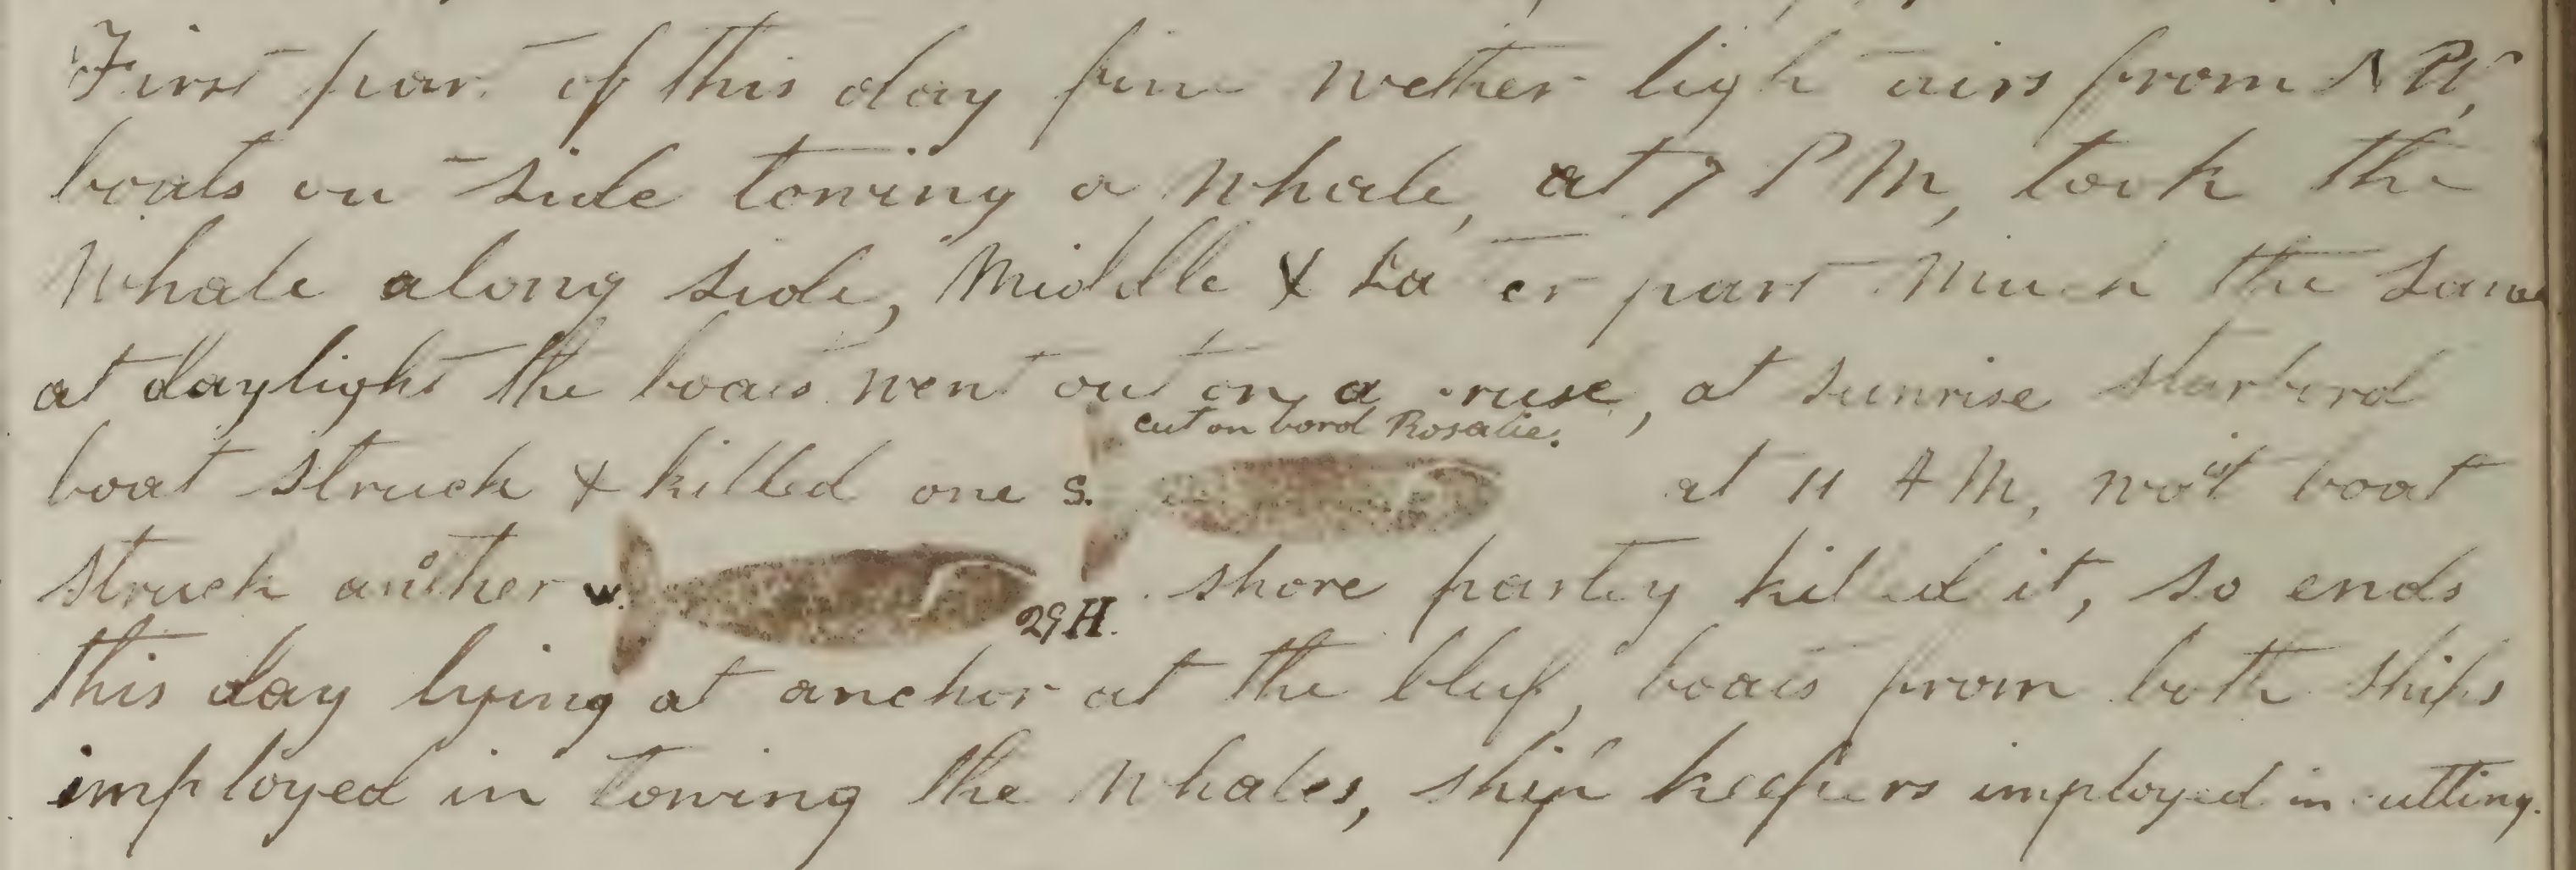 First par. of this day fine wether ligh airs from N W,
boats on side towing a whale, at 7 P M, took the
Whale along side, Middle & La er part much the same
at daylight the boats went out on a cruse, at sunrise starbord
cut on bord Rosalie.
boat struck & killed one s. at 11 A M, waist boat
struck another w. 29 H. shore party killed it, so ends
this day lying at anchor at the bluf, boats from both ships
imployed in towing the Whales, ship keepers imployed in cutting.